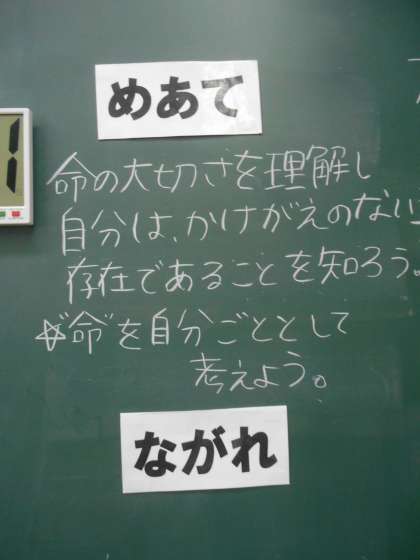 めあて
命の大切さを理解し
自分は、かけがえのない
存在であることを知ろう。
☆"命"を自分ごととして
考えよう。
ながれ